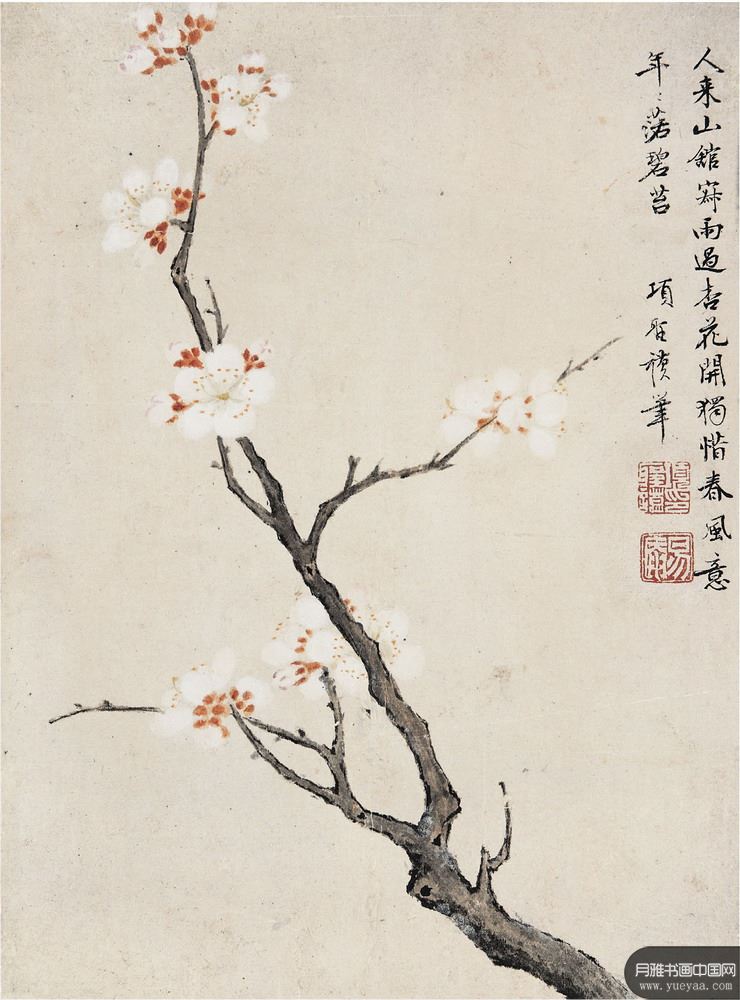 人来山館寂雨過杏花開獨惜春風意
年〻落碧苔
項聖禎筆
月雅书画中国网
www.yueyaa.com